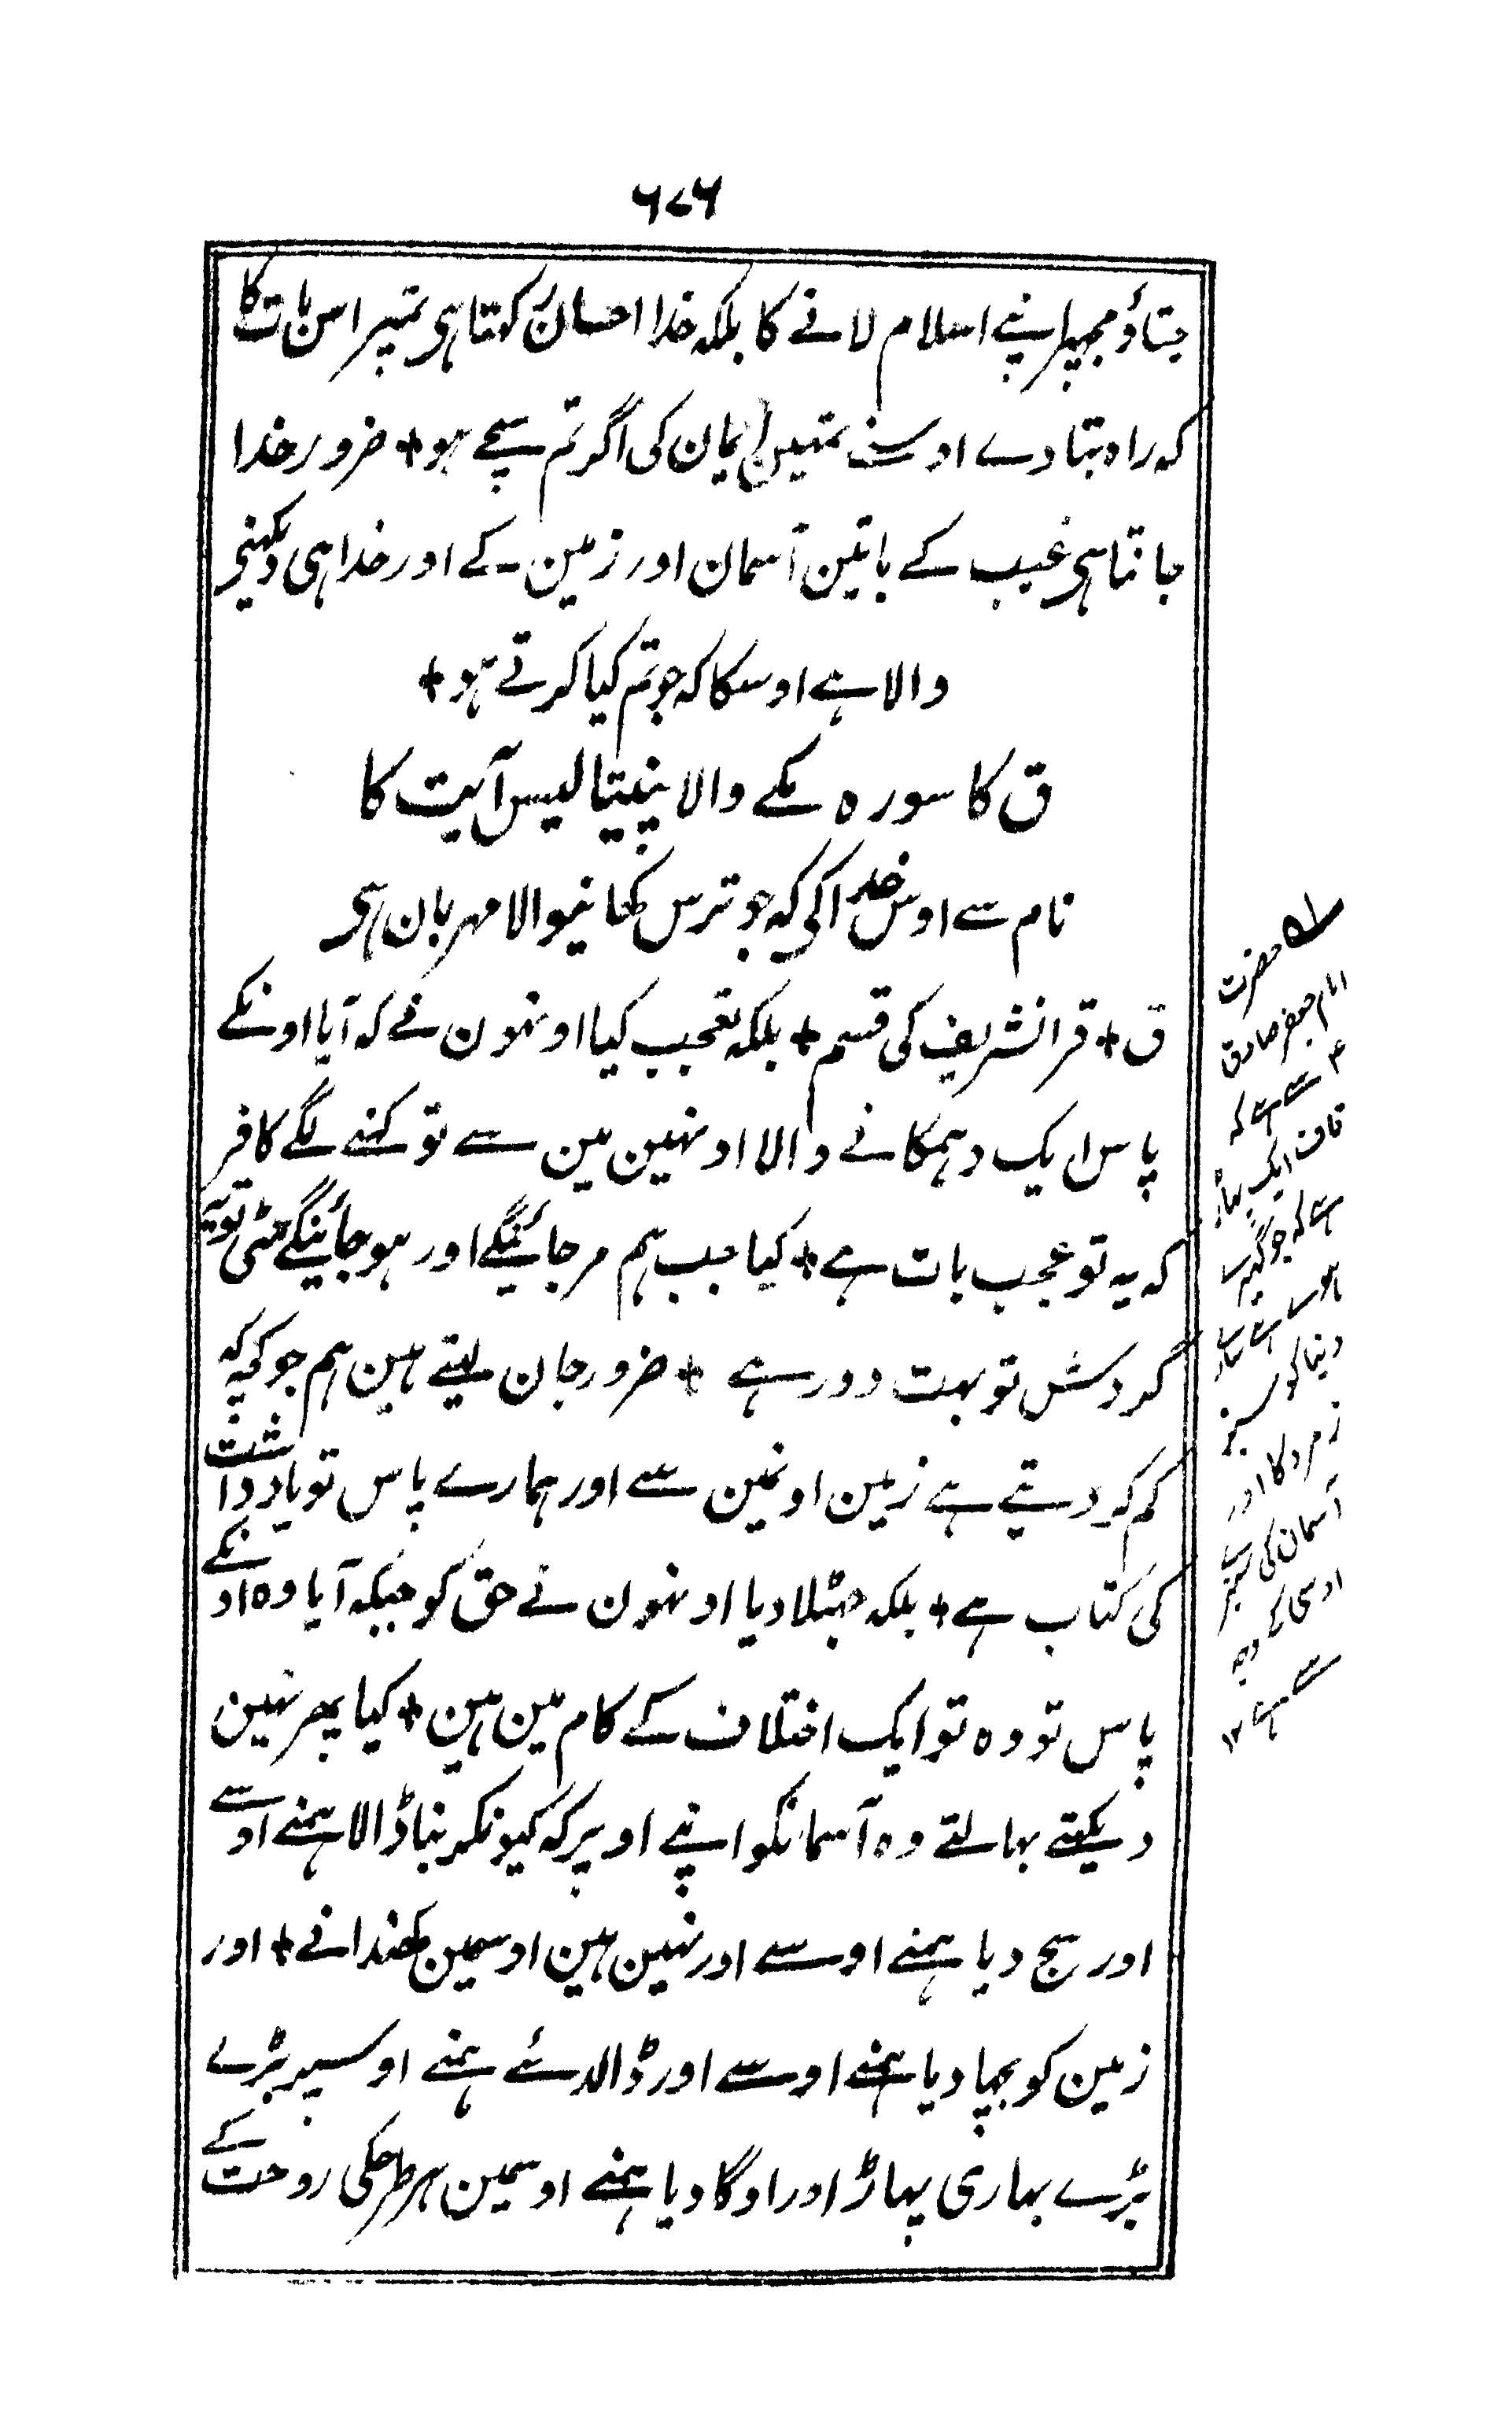 ۶۷۶
جتاؤ مجھپر اپنے اسلام لانے کا بلکہ خدا احسان رکھتا ہی تمپر اس بات کا
کہ راہ بتا دے اوسنے تمہیں ایمان کی اگر تم سچے ہو + ضرور خدا
جانتا ہی غیب کے باتین آسمان اور زمین کے اور خدا ہی دیکھنے
والا ہے اوسکا کہ جو تم کیا کرتے ہو +
ق کا سورہ مکے والا پنیتالیس آیت کا
نام سے اوس خدا کی کہ جو ترس کھانیوالا مہربان ہی
ق + قرانشریف کی قسم + بلکہ تعجب کیا اونہون نے کہ آیا اونکے
پاس ایک دہمکانے والا اونہین مین سے تو کہنے لگے کافر
کہ یہ تو عجب بات ہے + کیا جب ہم مر جائینگے اور ہو جائینگے مٹی تو یہ
گردش تو بہت دور ہے + ضرور جان لیتے ہین ہم جو کچہ کہ
کم کر دیتے ہے زمین اونمین سے اور ہمارے پاس تو یادداشت
کی کتاب ہے + بلکہ جہٹلا دیا اونہون نے حق کو جبکہ آیا وہ اونکے
پاس تو وہ تو ایک اختلاف کے کام مین ہین + کیا پھر نہین
دیکہتے بہالتے وہ آسمانکو اپنے اوپر کہ کیونکر بنا ڈالا ہمنے اوسے
اور سج دیا ہمنے اوسے اور نہین ہین اوسمین کھندانے + اور
زمین کو بچہا دیا ہمنے اوسے اور ڈالدئے ہمنے اوسپر بڑے
بڑے بہاری پہاڑ اور اوگا دیا ہمنے اوسمین ہر طرحکی روحت کے
حضرت
امام جعفر صادق
ع سے ہے کہ
قاف ایک پہاڑ
ہے کہ جو گہیرے
ہوے ہے ساری
دنیا کو سبز
زمرد کا اور
آسمان کی سبزی
اوسی کے وجہ
سے ہے ۱۲